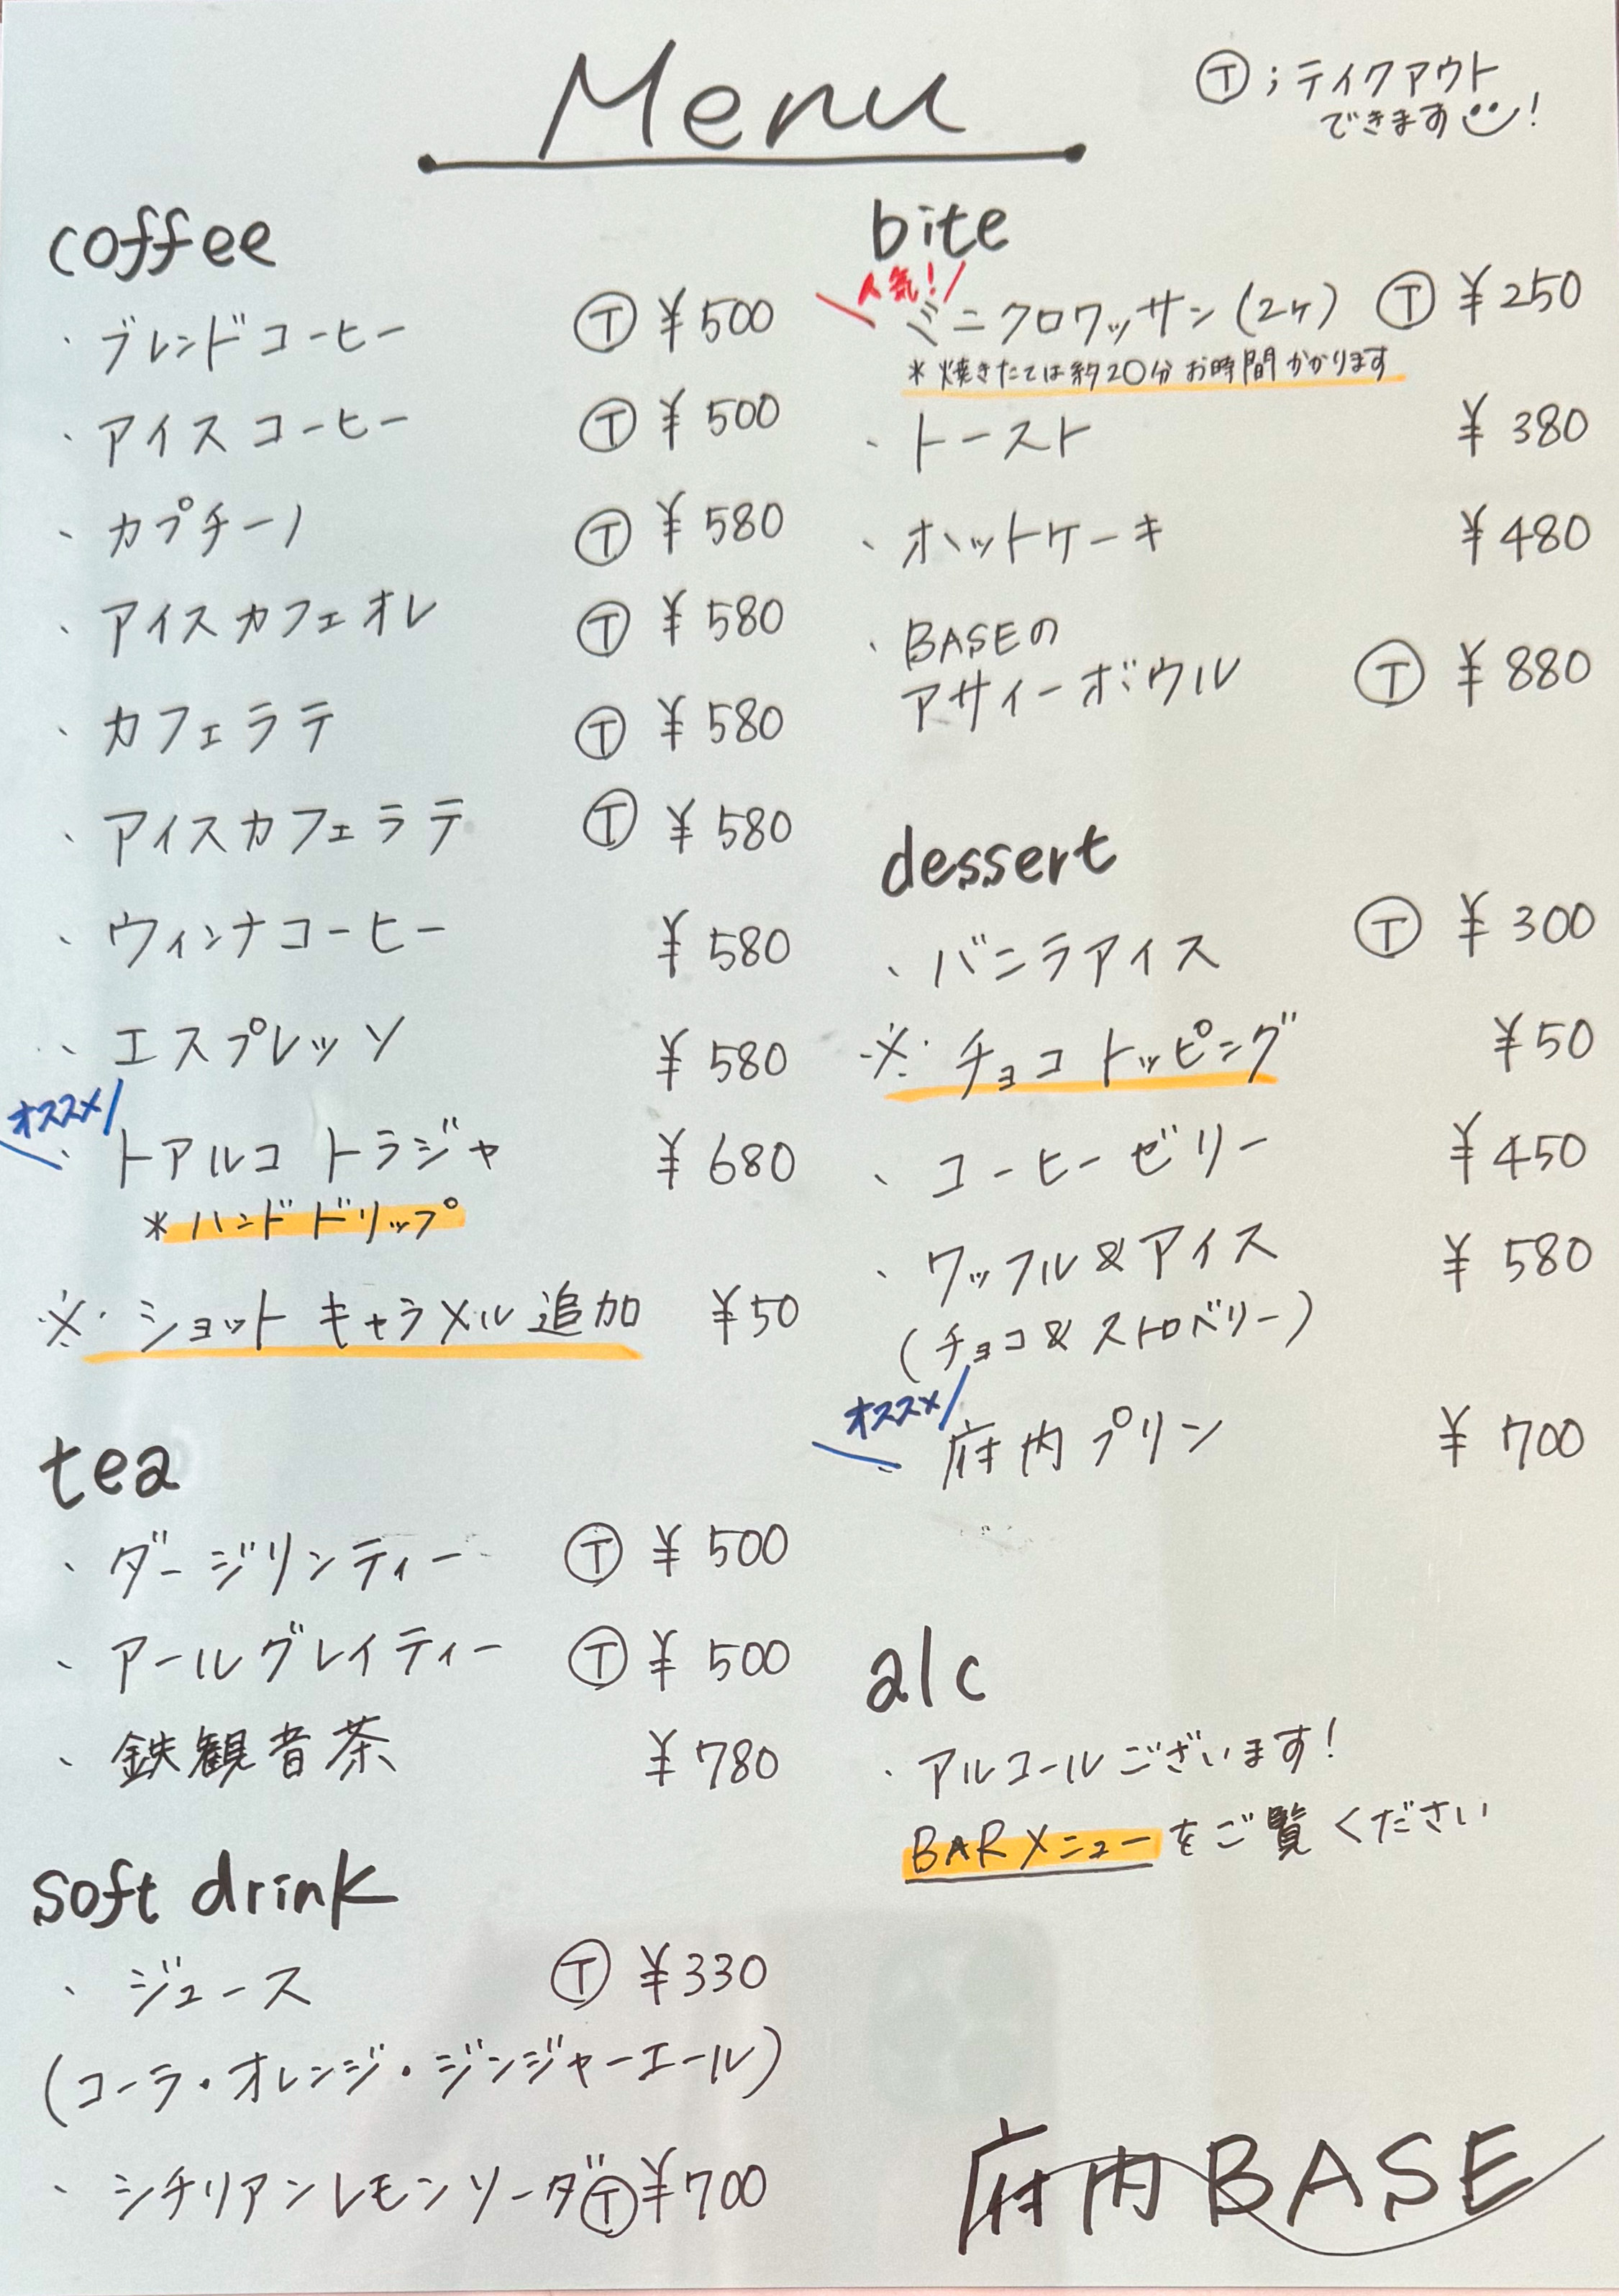 Menu
Ⓣ;テイクアウト
できます!
coffee
・ブレンドコーヒー Ⓣ ¥500
・アイスコーヒー Ⓣ ¥500
・カプチーノ Ⓣ ¥580
・アイスカフェオレ Ⓣ ¥580
・カフェラテ Ⓣ ¥580
・アイスカフェラテ Ⓣ ¥580
・ウィンナコーヒー ¥580
・エスプレッソ ¥580
オススメ
・トアルコ トラジャ ¥680
*ハンドドリップ
※・ショット キャラメル追加 ¥50
tea
・ダージリンティー Ⓣ ¥500
・アールグレイティー Ⓣ ¥500
・鉄観音茶 ¥780
soft drink
・ジュース Ⓣ ¥330
(コーラ・オレンジ・ジンジャーエール)
・シチリアンレモンソーダ Ⓣ ¥700
bite
人気!
ミニクロワッサン(2ヶ) Ⓣ ¥250
*焼きたては約20分お時間かかります
・トースト ¥380
・ホットケーキ ¥480
・BASEの
アサイーボウル Ⓣ ¥880
dessert
・バニラアイス Ⓣ ¥300
※・チョコトッピング ¥50
・コーヒーゼリー ¥450
・ワッフル&アイス ¥580
(チョコ&ストロベリー)
オススメ
・府内プリン ¥700
alc
・アルコールございます!
BARメニューをご覧ください
府内BASE